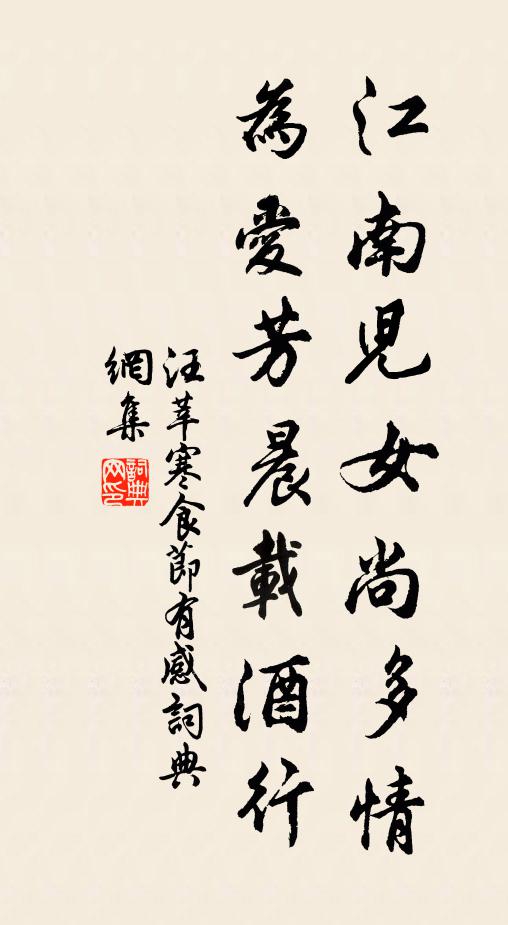 江南児女尚多情
為愛芳晨載酒行
汪莘寒食節有感詞典
網集
詞典
网印